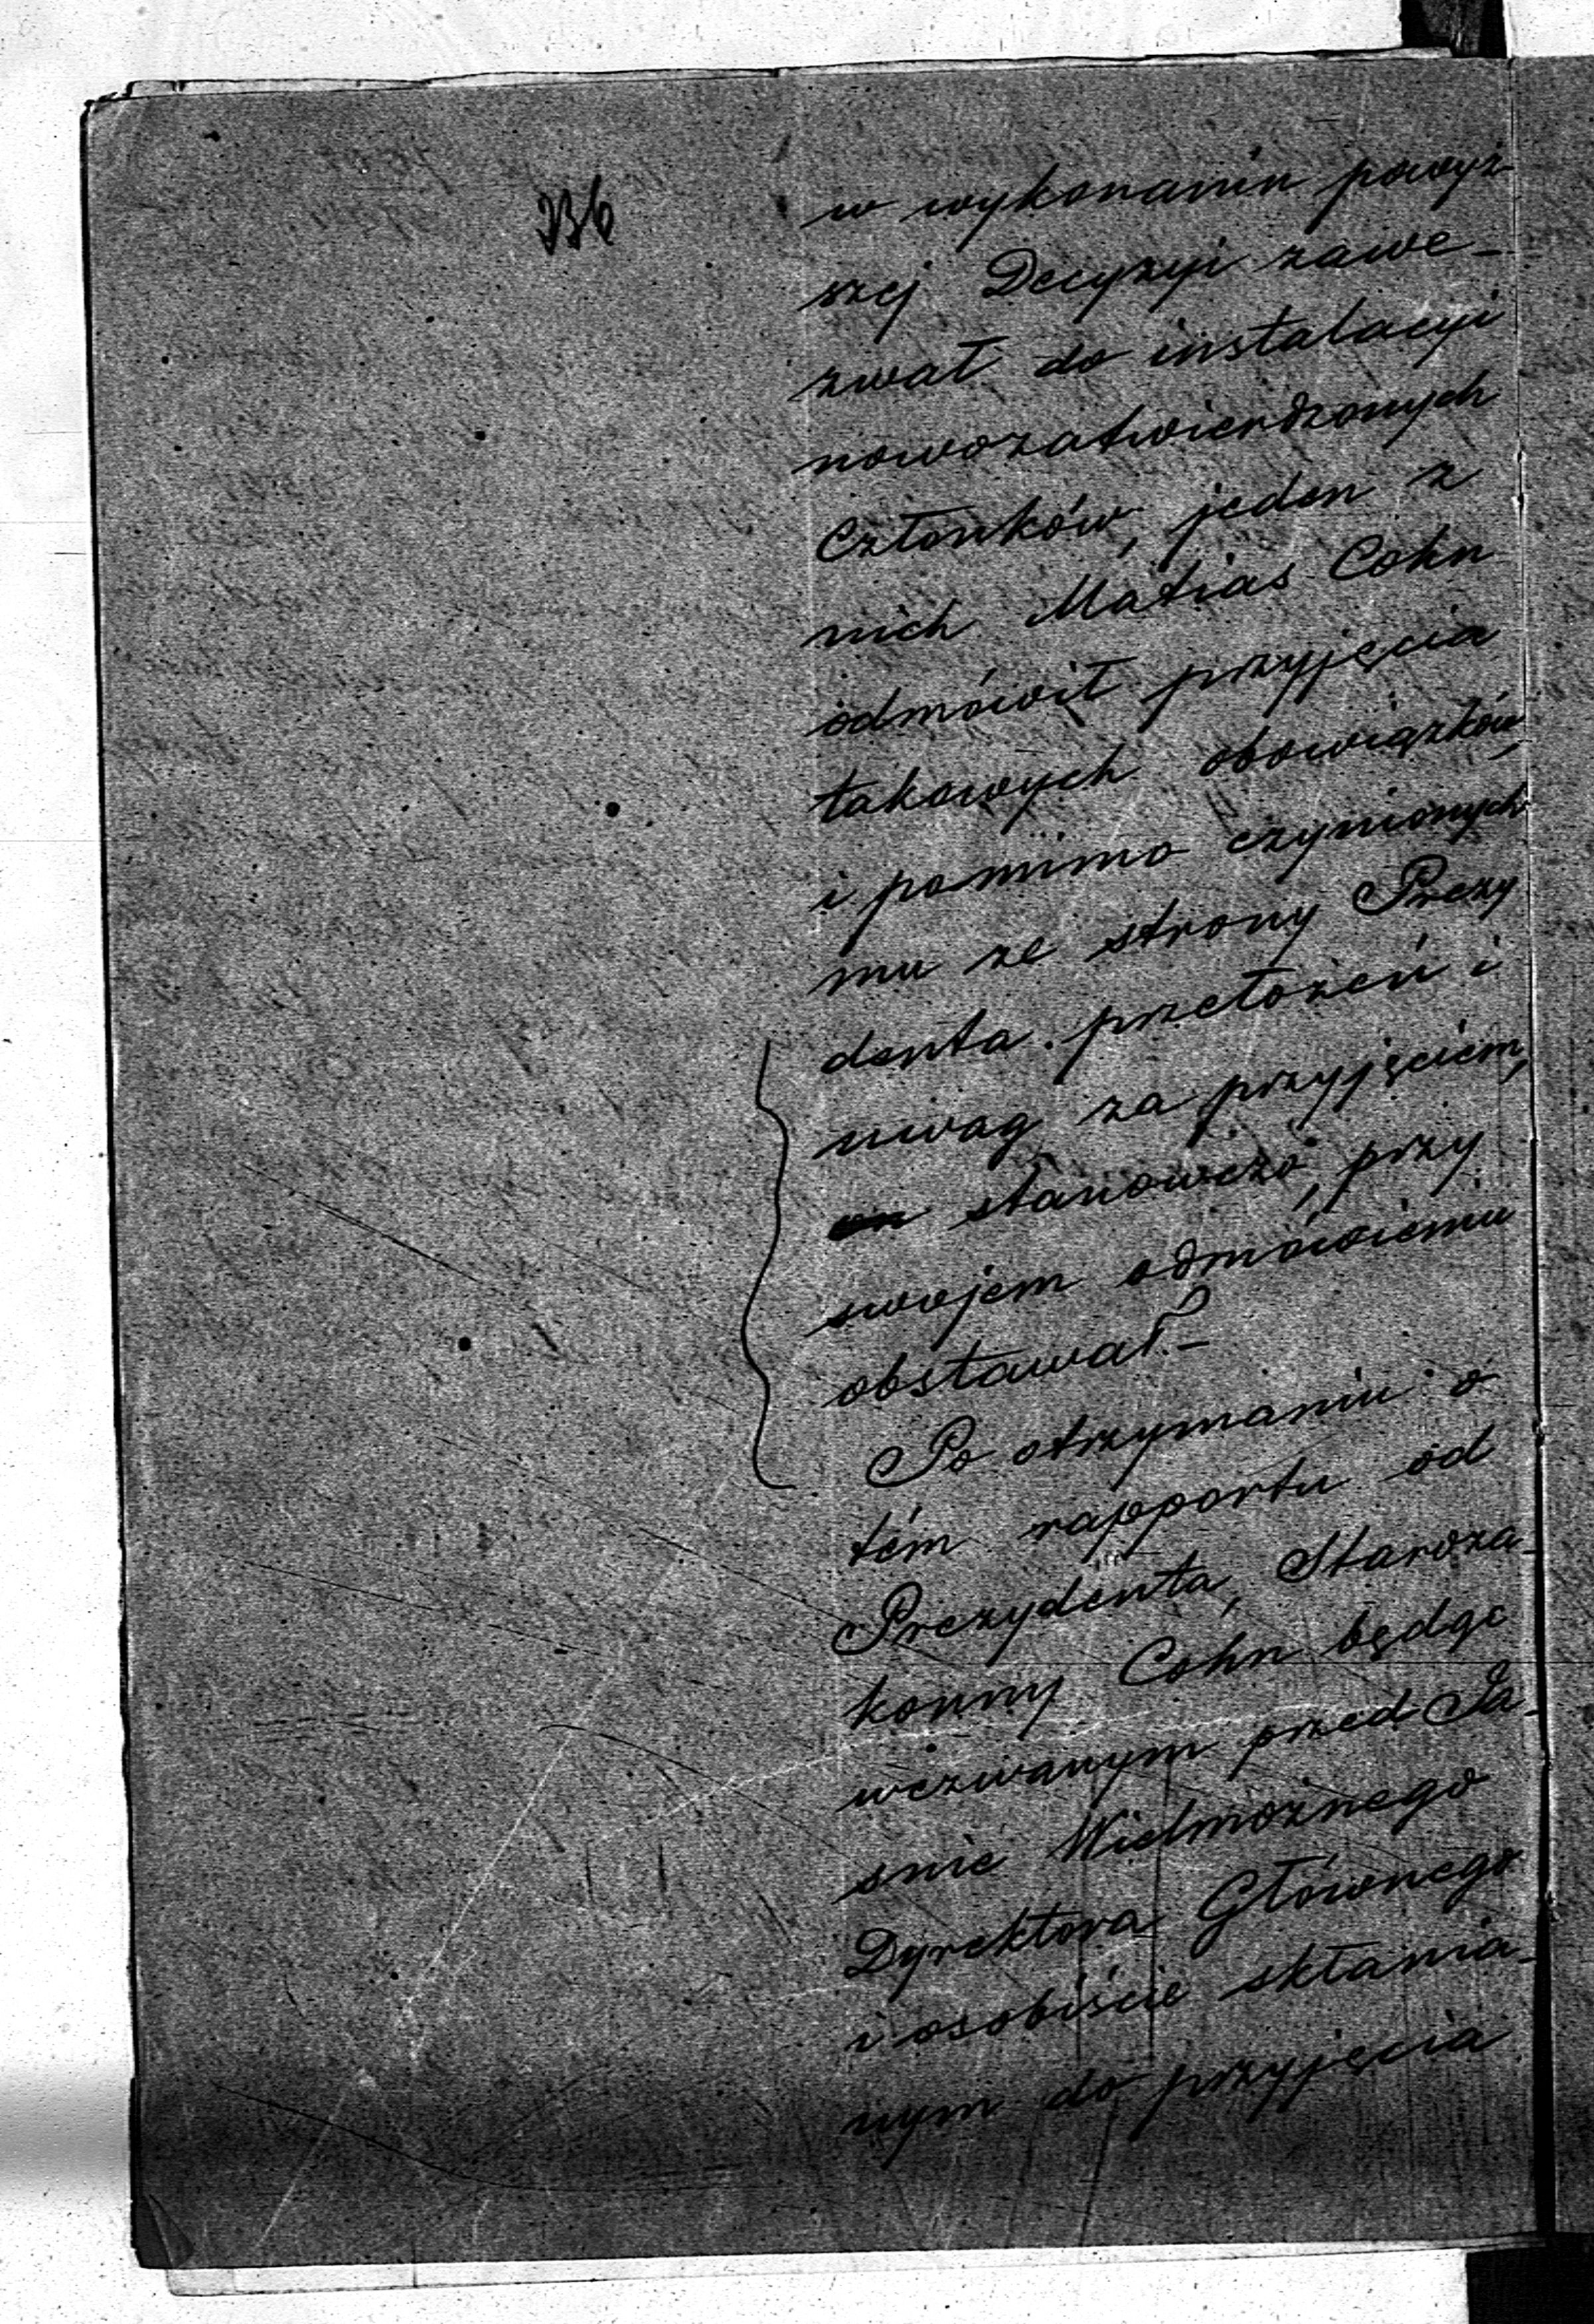 236
w wykonaniu powyż-
szej Decyzyi zawe-
zwał do instalacyi
nowozatwierdzonych
Członków, jeden z
nich Matias Cohn
odmówił przyjęcia
takowych obowiązków,
i pomimo czynionych
mu ze strony Prezy
denta przełożeń i
uwag za przyjęciem,
on stanowczo, przy
swojem odmówieniu
obstawał.–
Po otrzymaniu o
tém rapportu od
Prezydenta, Staroza-
konny Cohn będąc
wezwanym przed Ja-
śnie Wielmożnego
Dyrektora Głównego
i osobiście skłania-
nym do przyjęcia